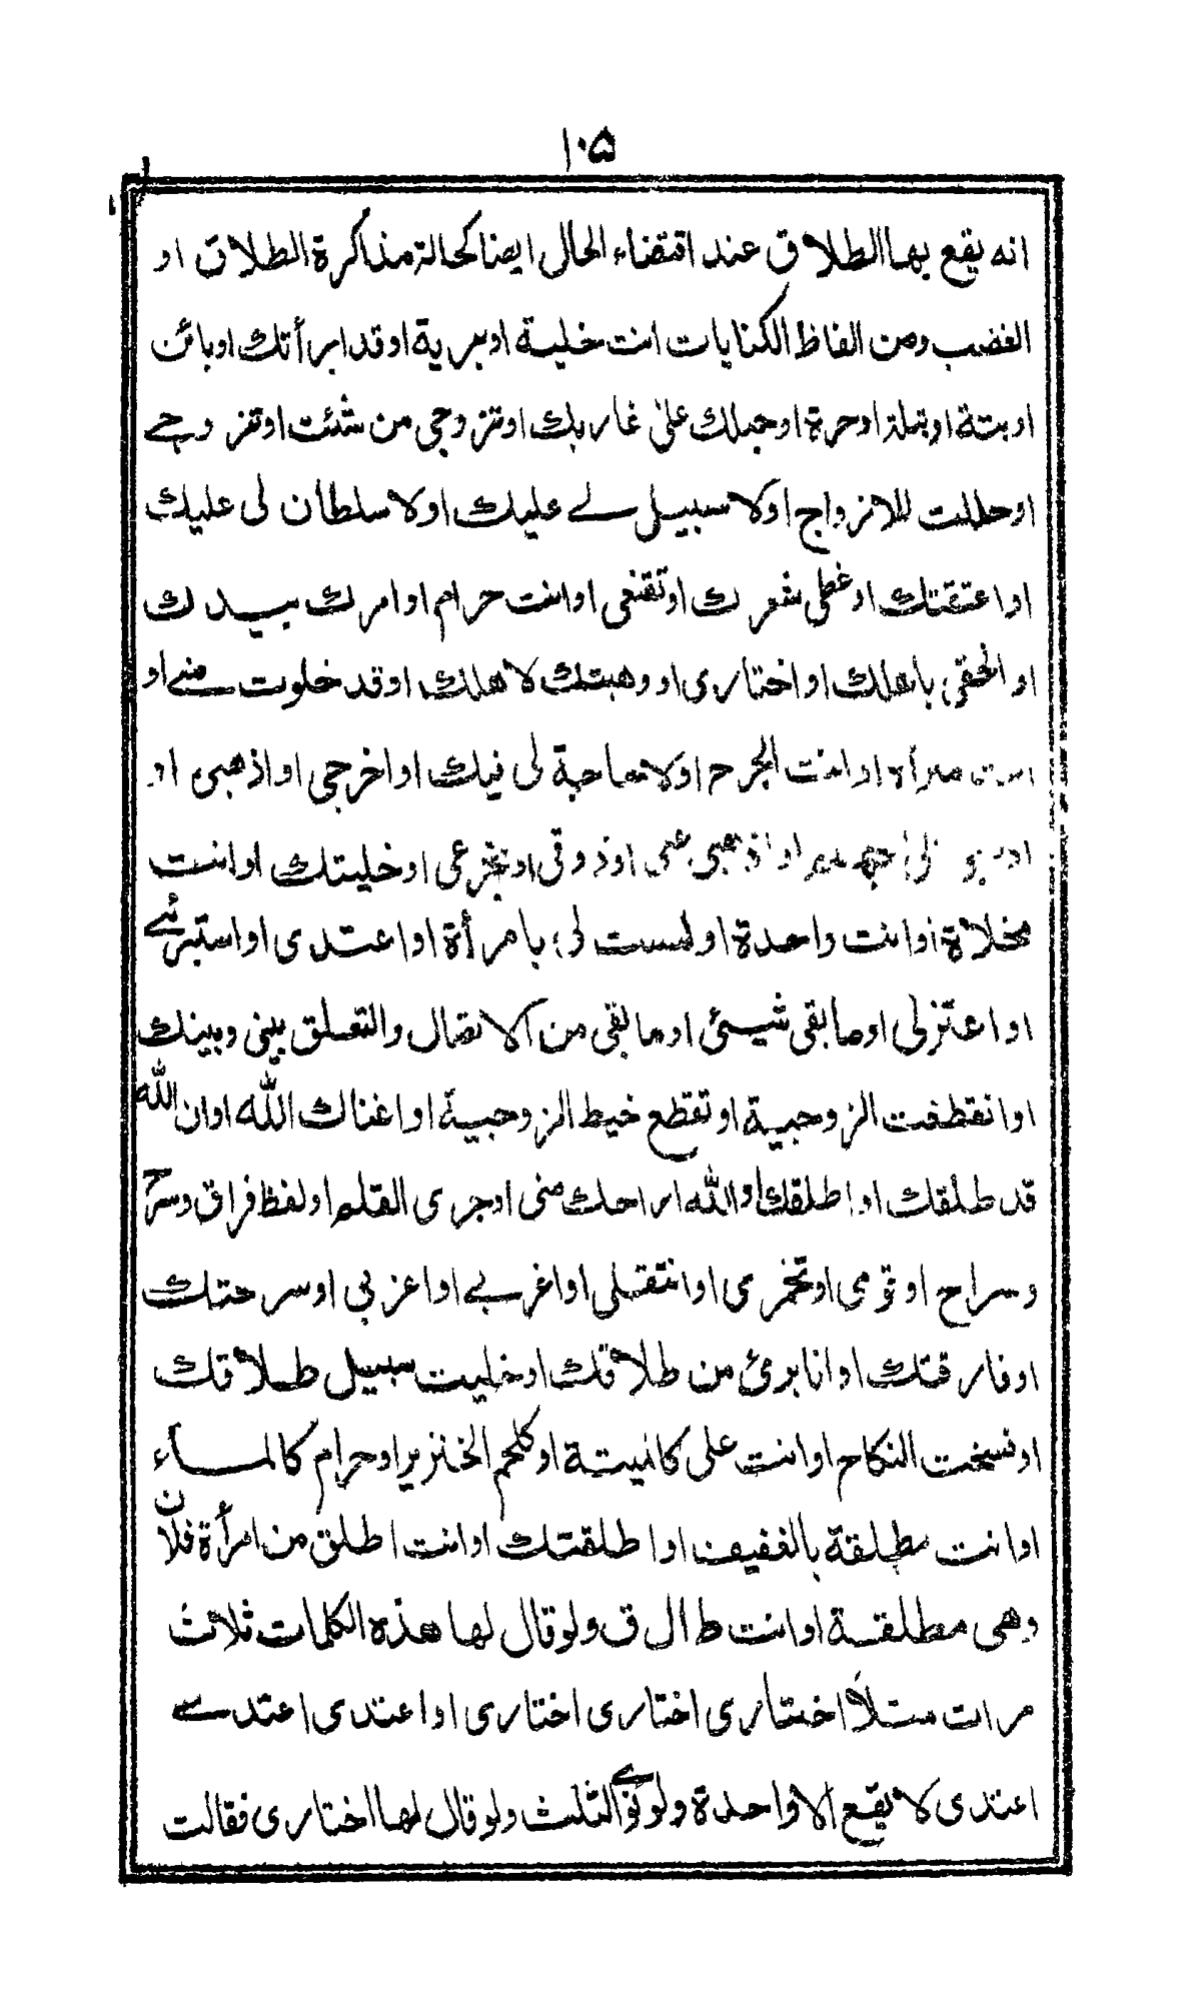 ١٠۵
انه يقع بها الطلاق عند اقتضاء الحال ايضا كحالة مذاكرة الطلاق او
الغضب ومن الفاظ الكنايات انت خلية او برية او قد ابرأتك او بائن
او بتة او بتلة او حرة او حبلك على غاربك او تزوجى من شئت او تزوجے
او حللت للازواج او لا سبيل لے عليك او لا سلطان لى عليك
او اعتقتك او غطى شعرك او تقنعى او انت حرام او امرك بيدك
او الحقى باهلك او اختارى او وهبتك لاهلك او قد خلوت منے او
انت مبرأة او انت الحرج او لا حاجة لى فيك او اخرجى او اذهبى او
جهنم او اذهبى عنى او ذوقى او تجرعى او خليتك او انت
مخلاة او انت واحدة او لست لى بامرأة او اعتدى او استبرئے
او اعتزلى او ما بقى شيئ او ما بقى من الاتصال والتعلق بينى وبينك
او انقطعت الزوجية او تقطع خيط الزوجية او اغناك الله او ان الله
قد طلقك او اطلقك او الله اراحك منى او جرى القلم او لفظ فراق وسرح
وسراح او قومى او تخمرى او انتقلى او اغربے او اعزبى او سرحتك
او فارقتك او انا برئ من طلاقك او خليت سبيل طلاقك
او نسخت النكاح او انت على كالميتة او كلحم الخنزير او حرام كالماء
او انت مطلقة بالخفيف او اطلقتك او انت اطلق من امرأة فلان
وهى مطلقة او انت ط ا ل ق ولو قال لها هذه الكلمات ثلاث
مرات مثلاً اختارى اختارى اختارى او اعتدى اعتدے
اعتدى لا يقع الا واحدة ولو نوے الثلث ولو قال لها اختارى فقالت